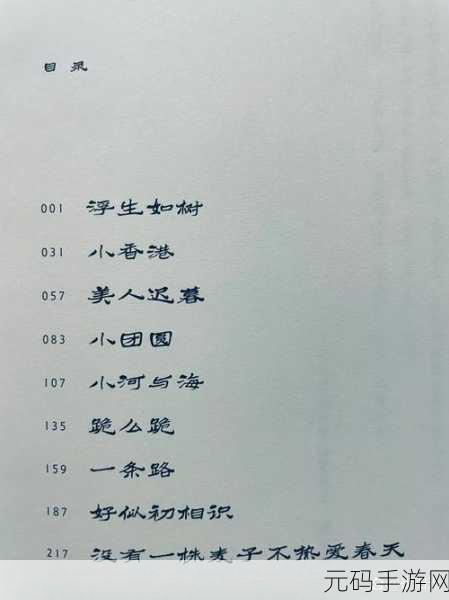 目录
001 浮生如树
031 小香港
057 美人迟暮
083 小团圆
107 小河与海
135 跪么跪
159 一条路
187 好似初相识
217 没有一株麦子不热爱春天
元码手游网